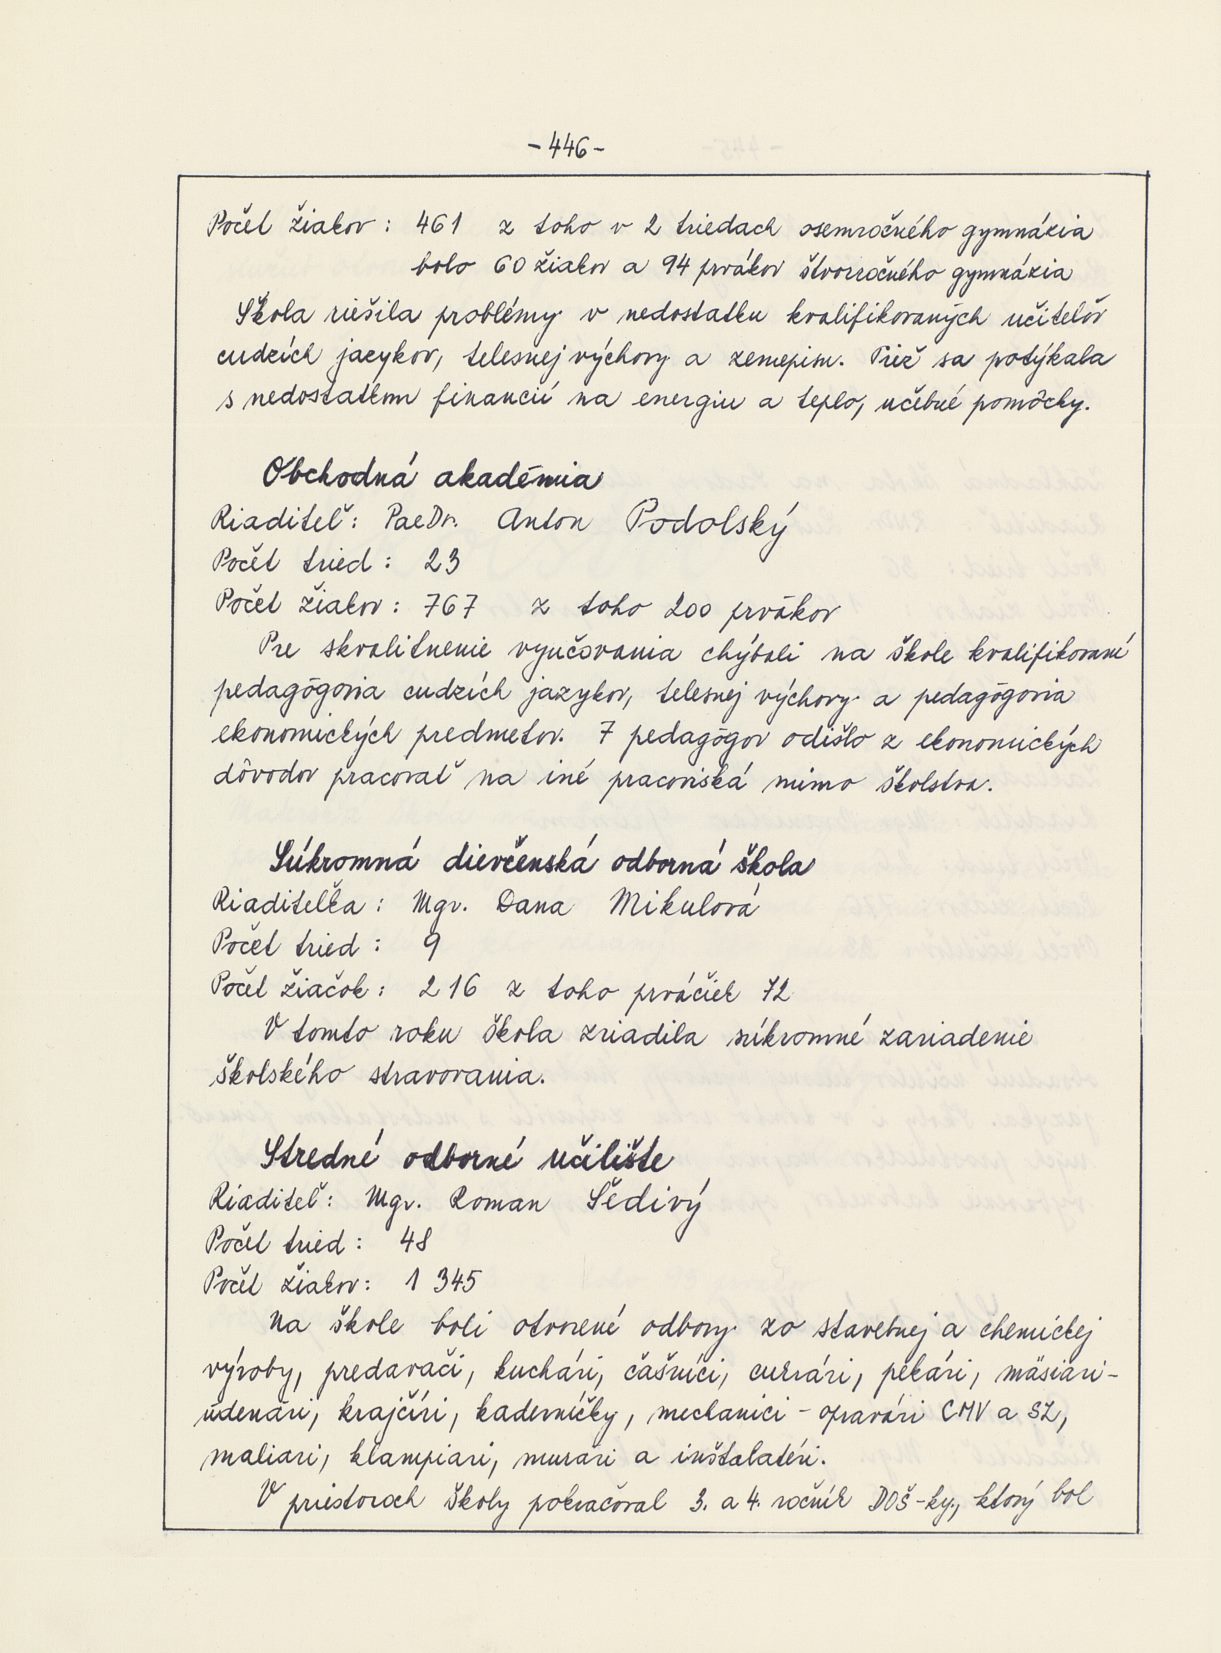 -446-
Počet žiakov : 461 z toho v 2 triedach osemročného gymnázia
bolo 60 žiakov a 94 prvákov štvorročného gymnázia
Škola riešila problémy v nedostatku kvalifikovaných učiteľov
cudzích jazykov, telesnej výchovy a zemepisu. Tiež sa potýkala
s nedostatkom financií na energiu a teplo, učebné pomôcky.
Obchodná akadémia
Riaditeľ : PaeDr. Anton Podolský
Počet tried : 23
Počet žiakov : 767 z toho 200 prvákov
Pre skvalitnenie vyučovania chýbali na škole kvalifikovaní
pedagógovia cudzích jazykov, telesnej výchovy a pedagógovia
ekonomických predmetov. 7 pedagógov odišlo z ekonomických
dôvodov pracovať na iné pracoviská mimo školstva.
Súkromná dievčenská odborná škola
Riaditeľka : Mgr. Dana Mikulová
Počet tried : 9
Počet žiačok : 216 z toho prváčiek 72
V tomto roku škola zriadila súkromné zariadenie
školského stravovania.
Stredné odborné učilište
Riaditeľ : Mgr. Roman Šedivý
Počet tried : 48
Počet žiakov : 1 345
Na škole boli otvorené odbory zo stavebnej a chemickej
výroby, predavači, kuchári, čašníci, cukrári, pekári, mäsiari-
údenári, krajčíri, kaderníčky, mechanici - opravári CMV a SZ,
maliari, klampiari, murári a inštalatéri.
V priestoroch školy pokračoval 3. a 4. ročník DOŠ-ky, ktorý bol